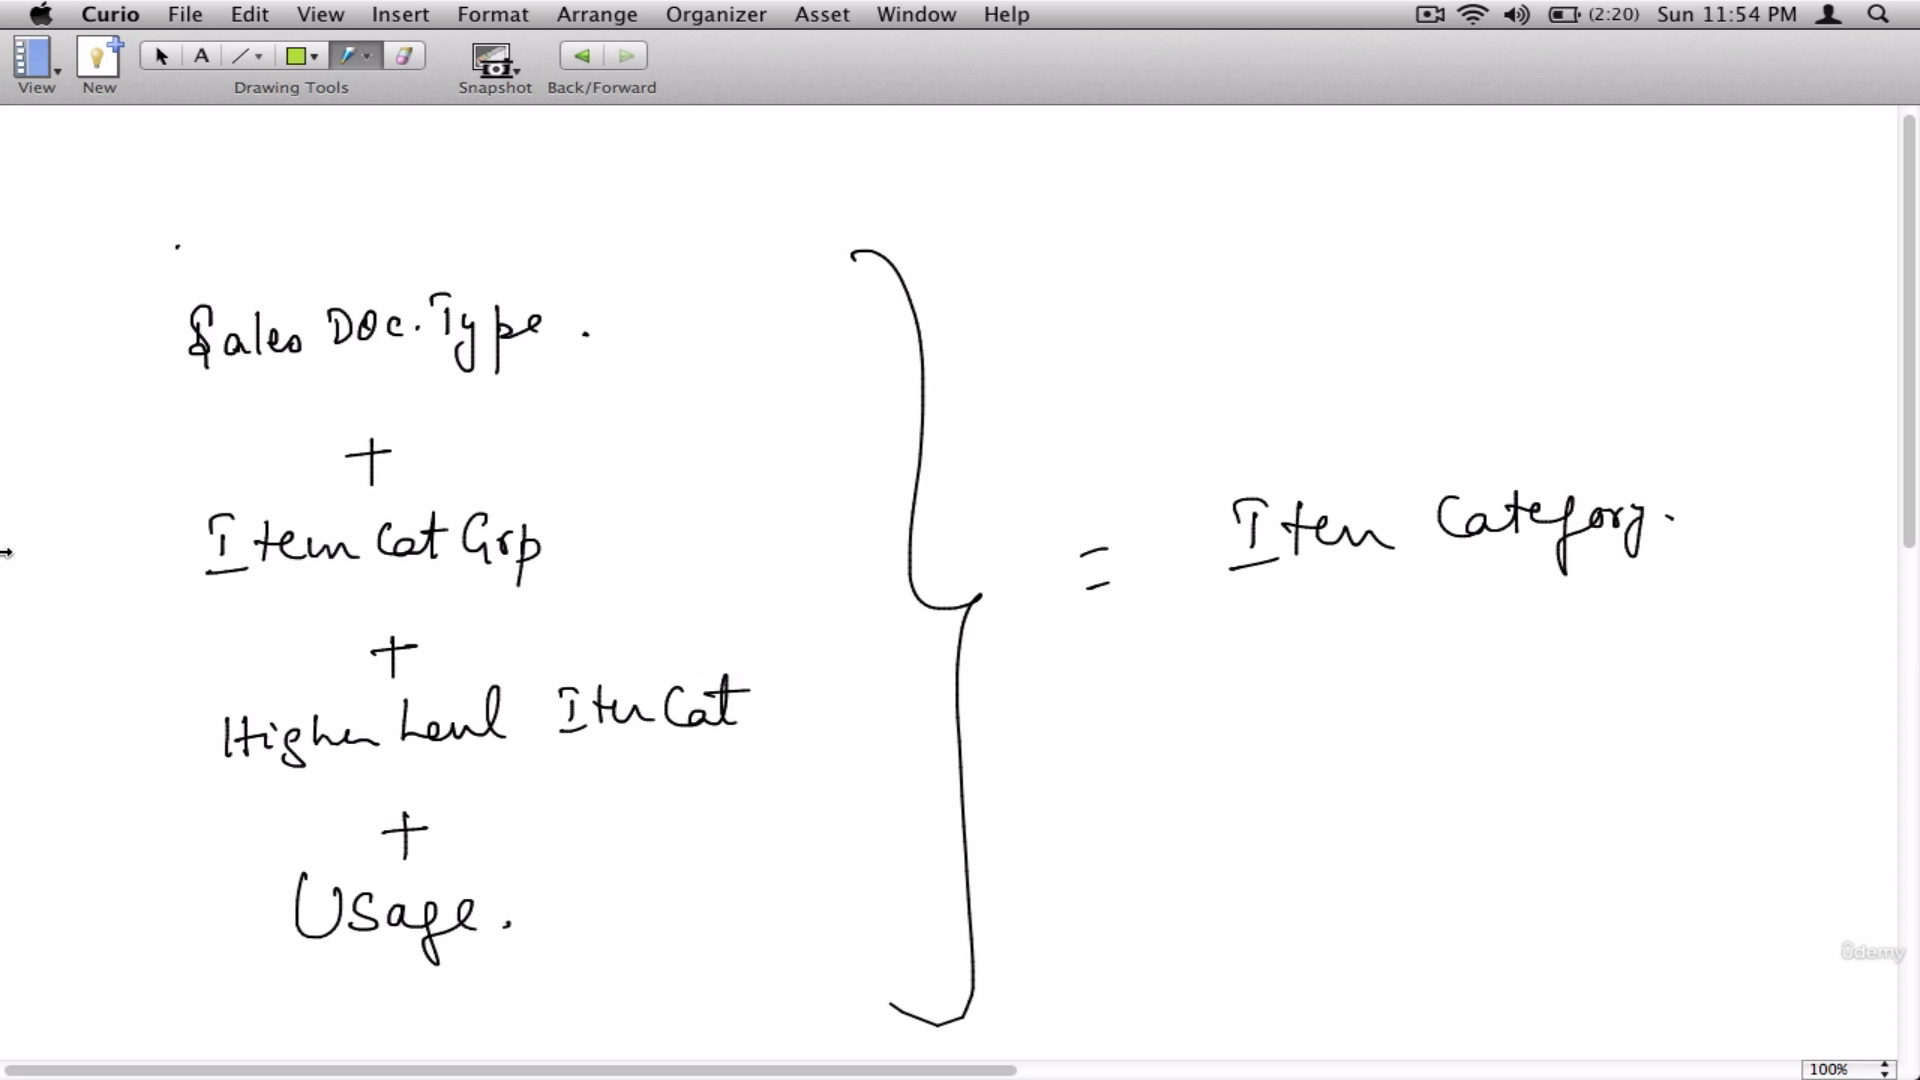 Curio File Edit View Insert Format Arrange Organizer Asset Window Help (2:20) Sun 11:54 PM
A
View New Drawing Tools Snapshot Back/Forward
Sales Doc. Type.
+
Item Cat Grp
+
Higher Level Item Cat
+
Usage.
= Item Category.
ûdemy
100%